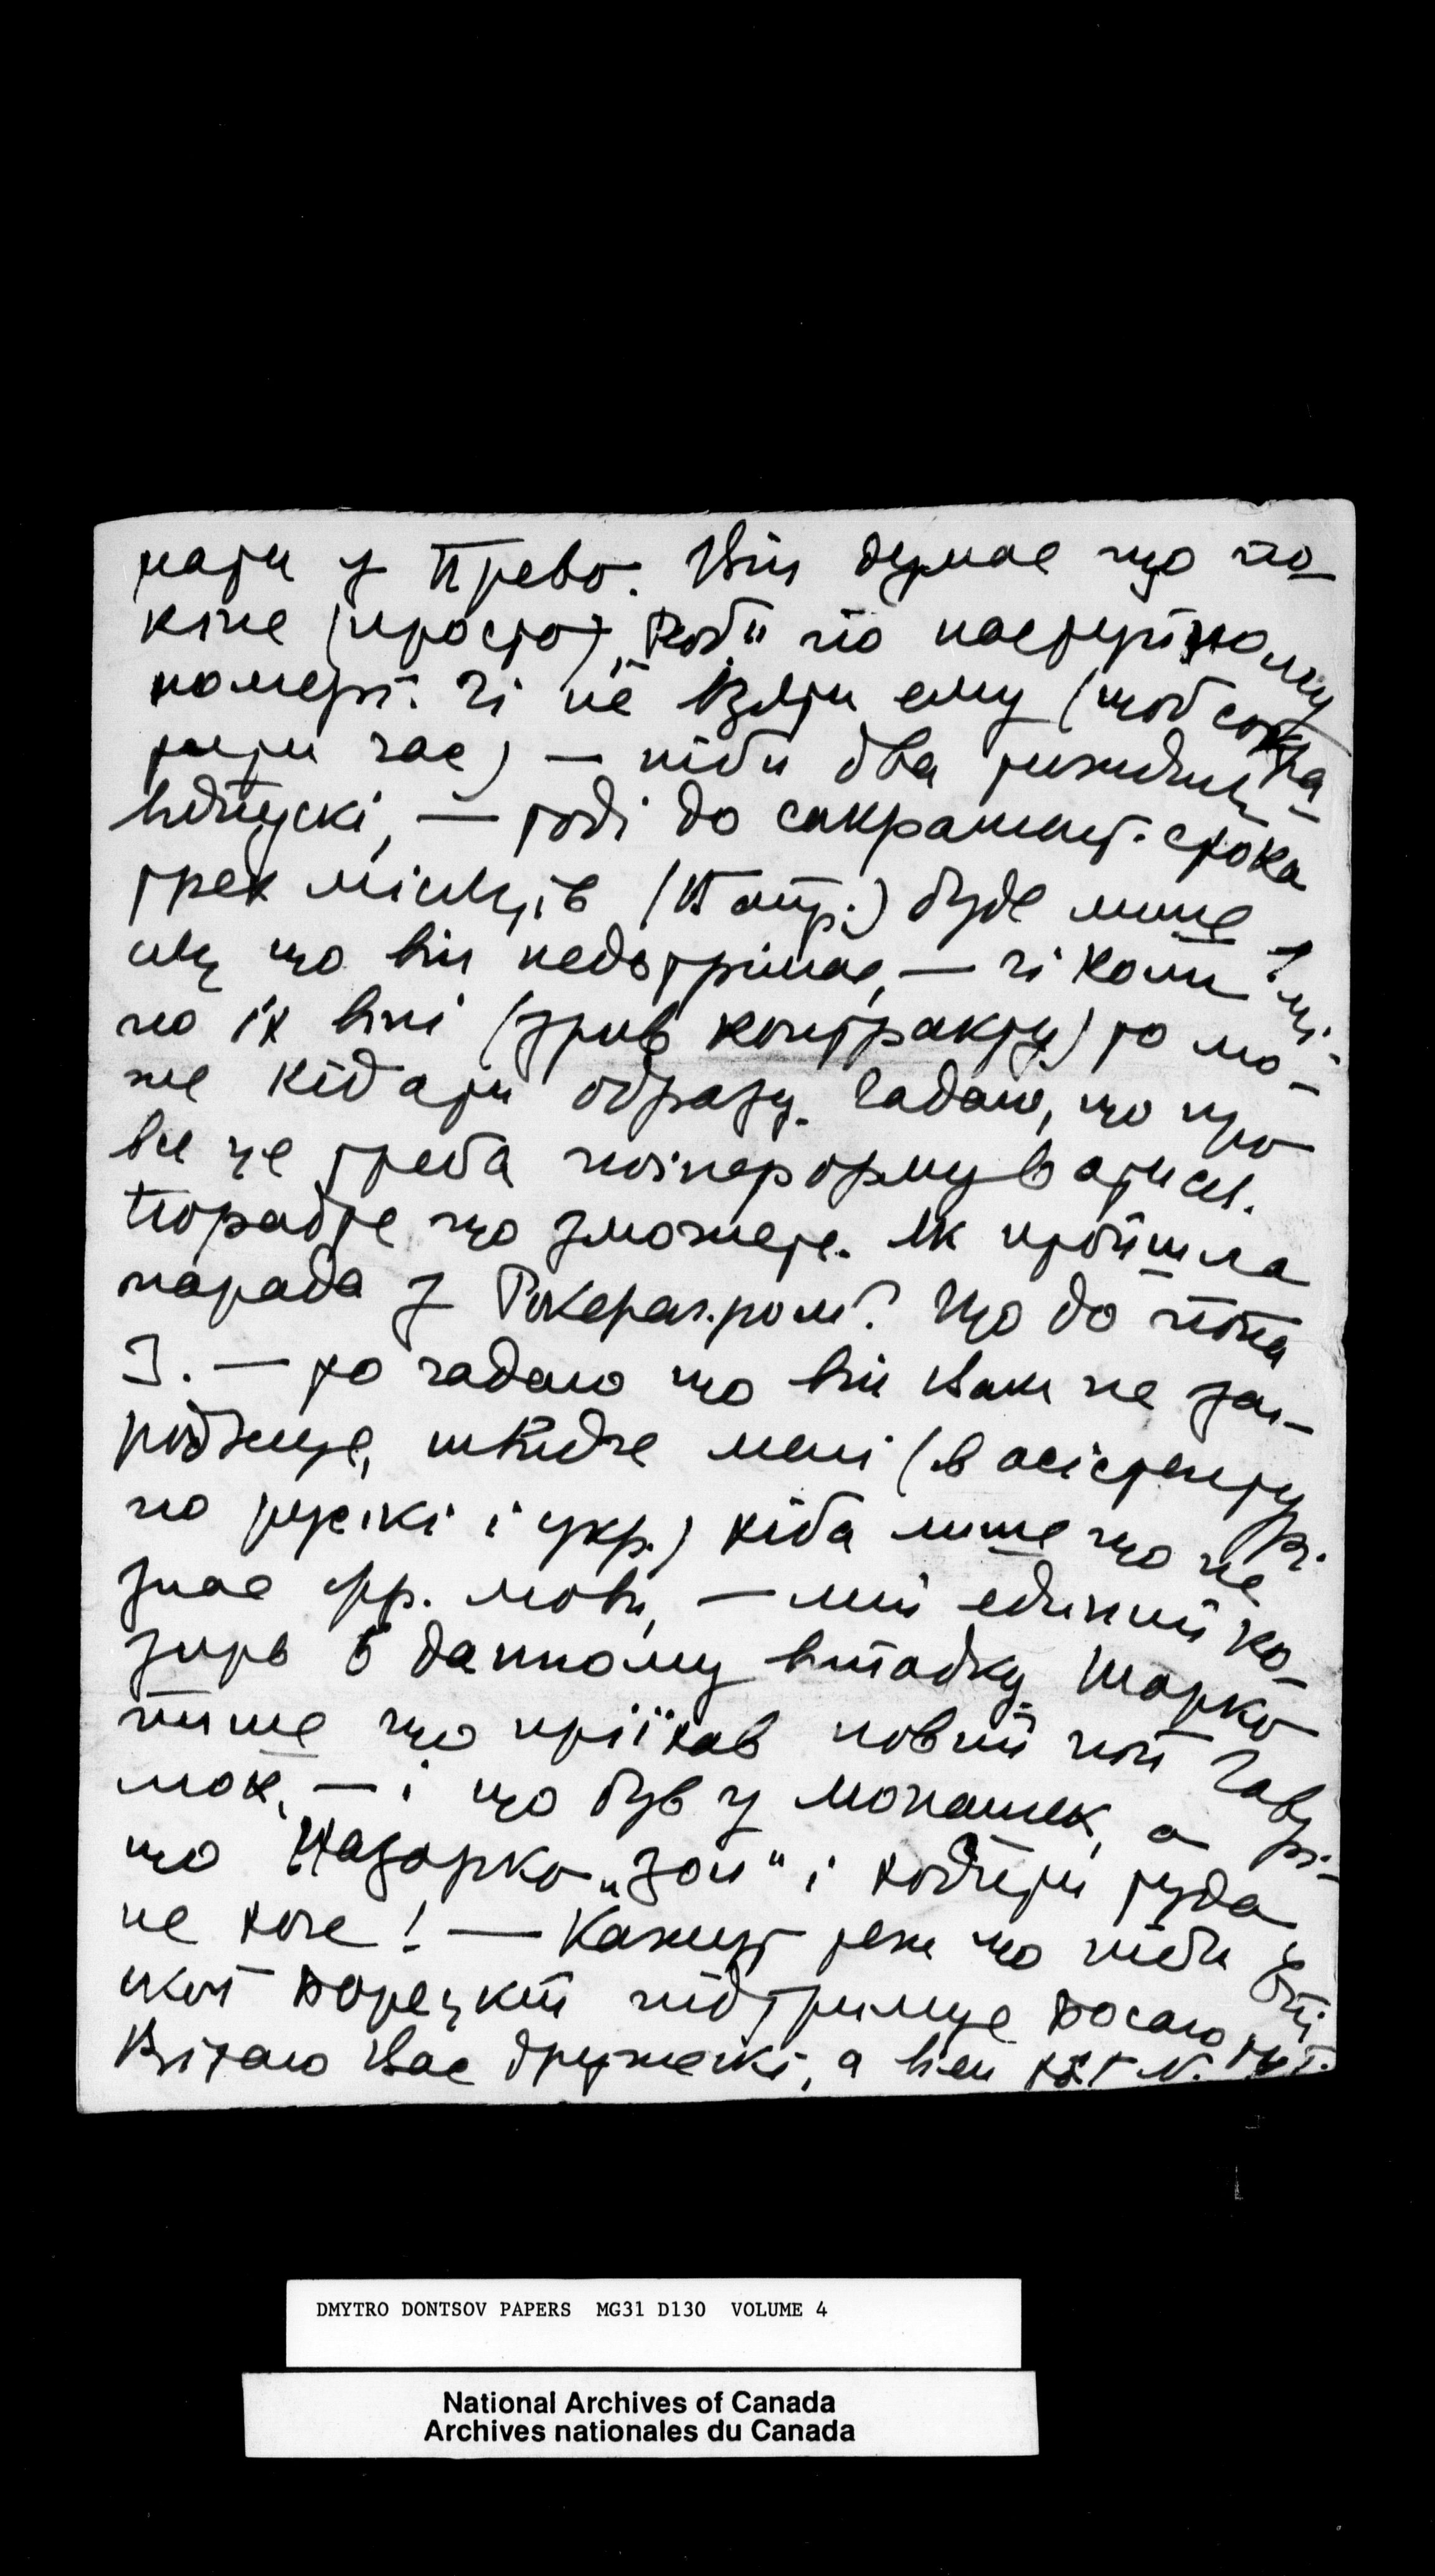 нати у Прево. Він думае що по-
кіне (просто) „Роб." по наступному
номері. Чі не взяти ему (щоб сокра-
тити час) — ніби два тижднів
відпускі, — тоді до сакрамент. срока
трех місяців (Катр.) буде лише 1 мі-
сяц що він недотрімае, — чі коли
по іх віні (зрив контракту) то мо-
же кідати образу. Гадаю, що про
все це треба поінформуватися.
Порадте що зможете. Як пройшла
нарада з Рокера..ром? Що до попа
І. — то гадаю що він Вам не заг-
рожуе, швидче мені (в асістентурі
по руські і укр.) хіба лише що не
знае фр. мови, — мій едіний ко-
зирь в данному випадку. Шарко
пише що пріїхав новий піп Гаврі-
люк, — і що був у монашек, а
що Назарко „зая" і ходити туда
не хоче! — Кажут теж що ніби епі-
скоп Борецкій підтримуе
Вітаю Вас дружескі, а
DMYTRO DONTSOV PAPERS MG31 D130 VOLUME 4
National Archives of Canada
Archives nationales du Canada